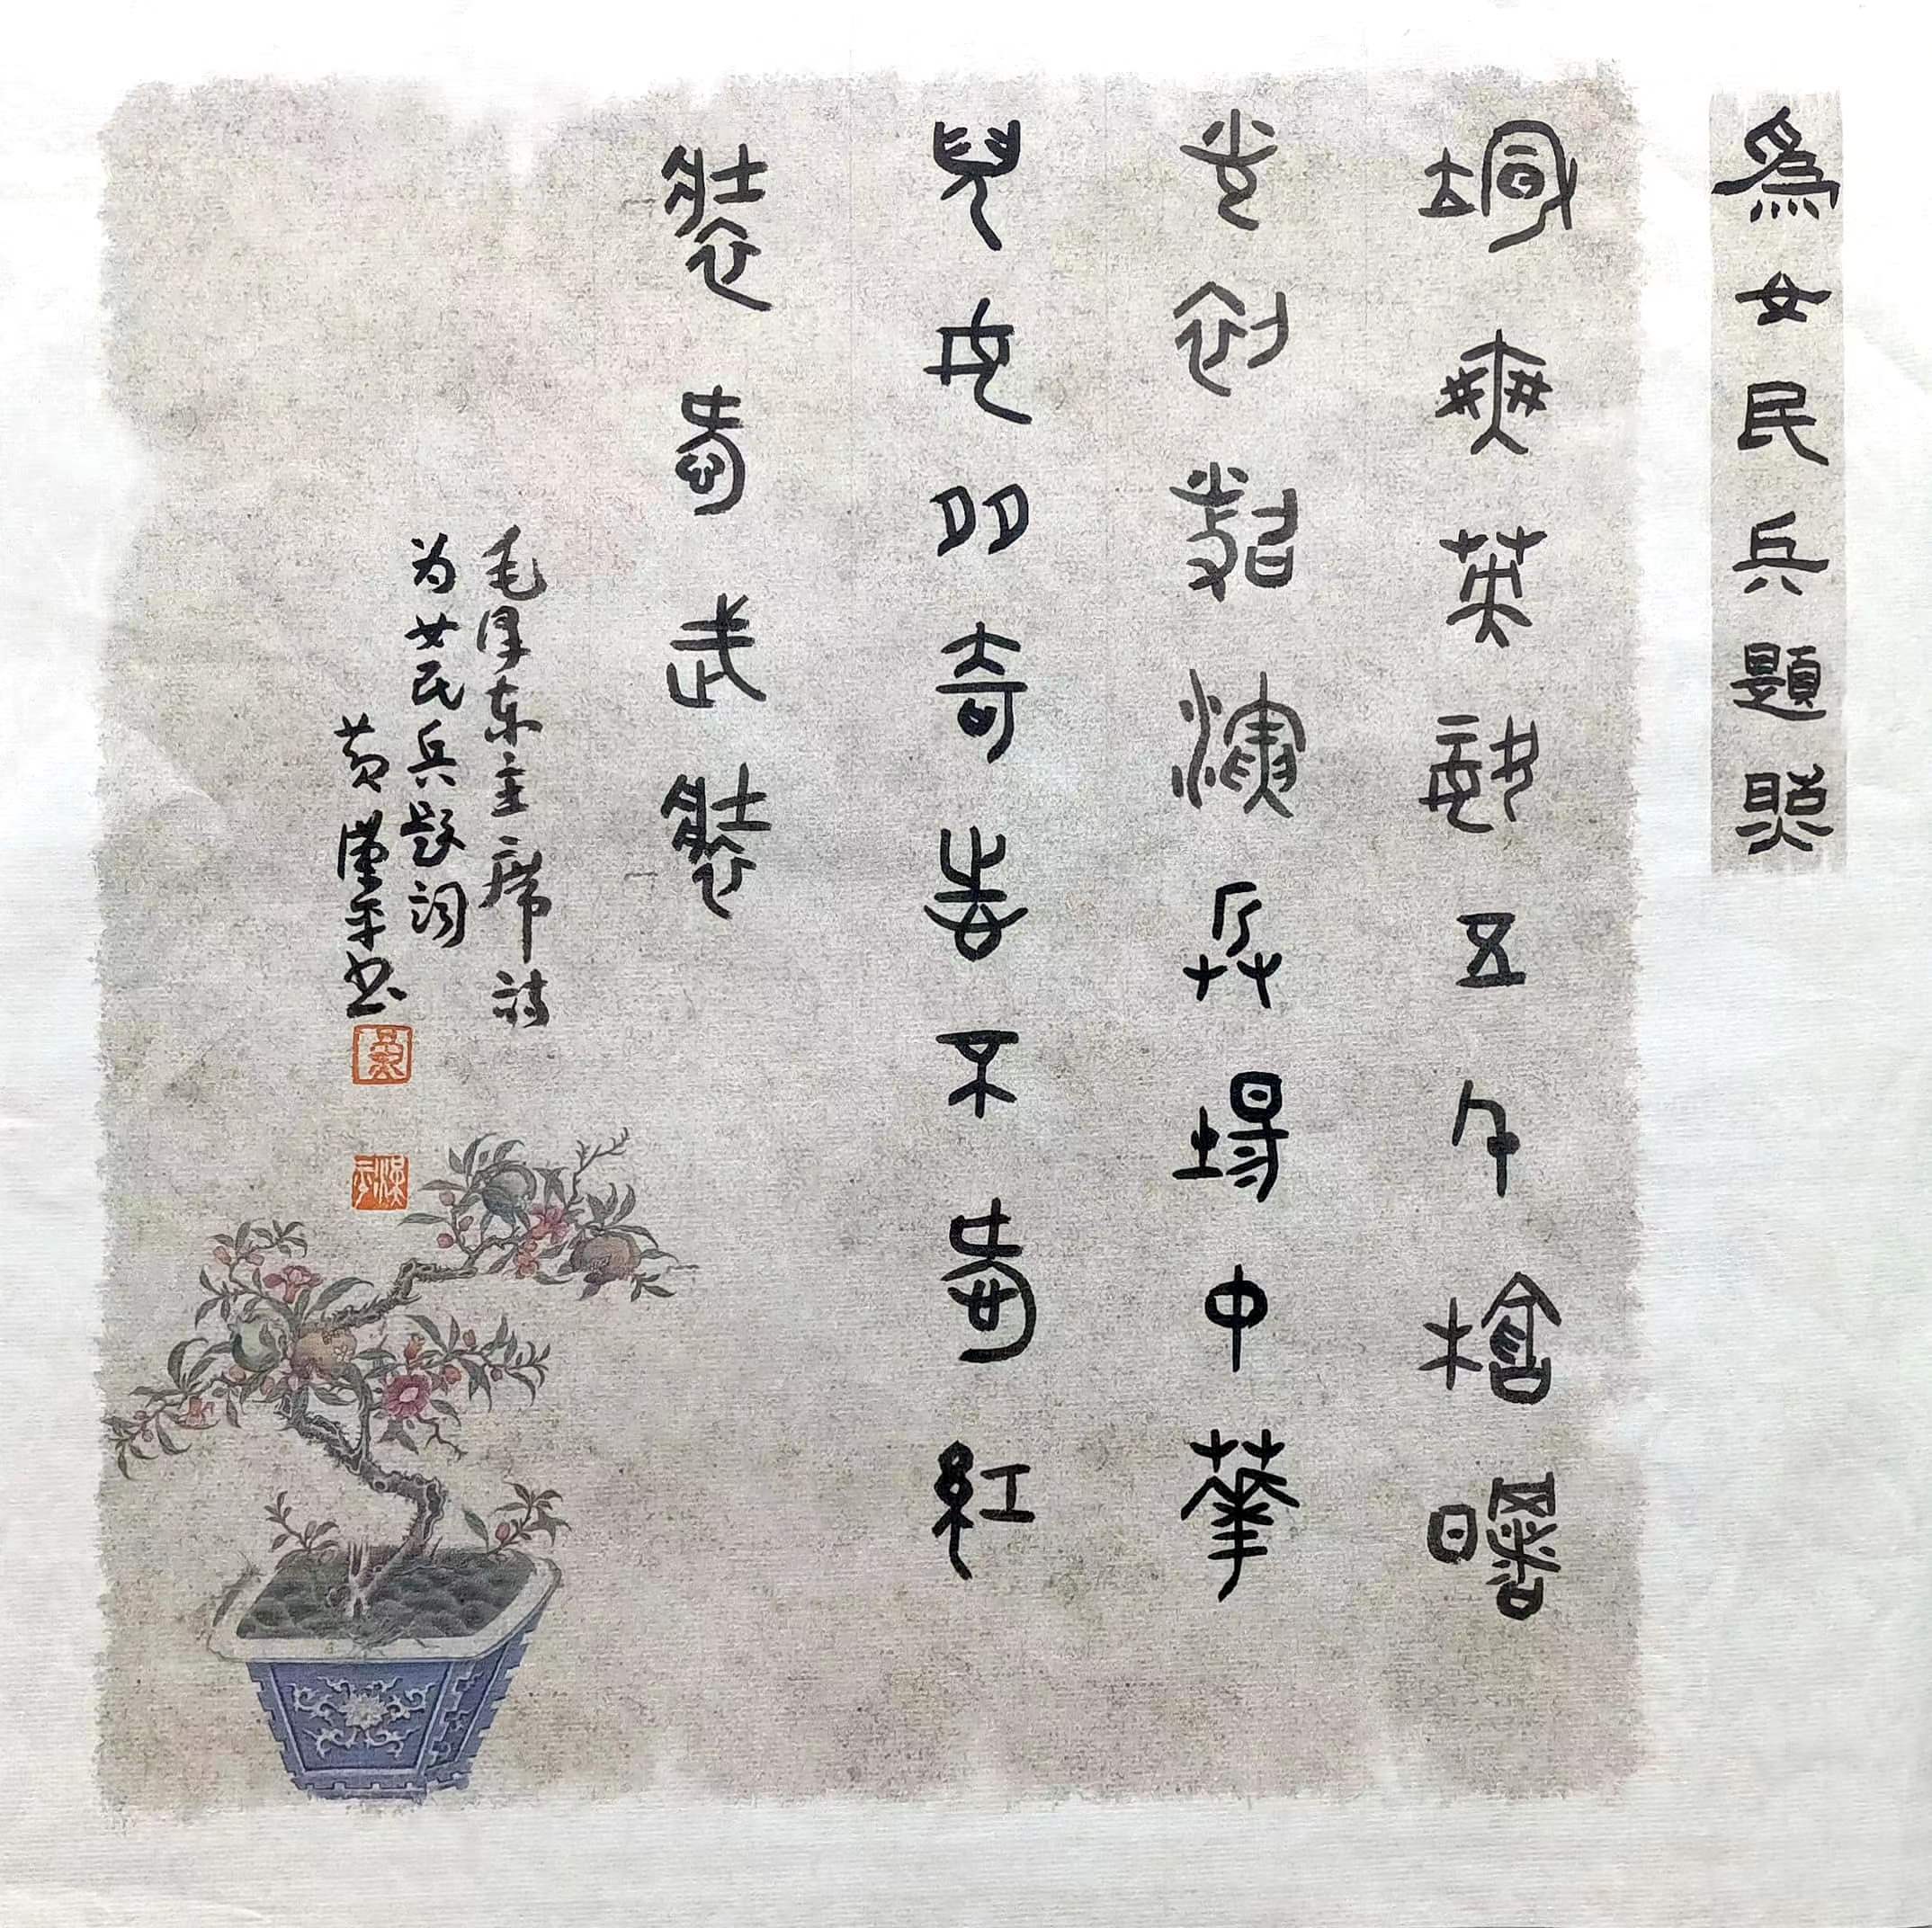 爲女民兵題照
颯爽英姿五尺槍曙
光初照演兵場中華
兒女多奇志不愛紅
裝愛武裝
毛泽东主席诗
为女民兵题词
黄漢平书
黄